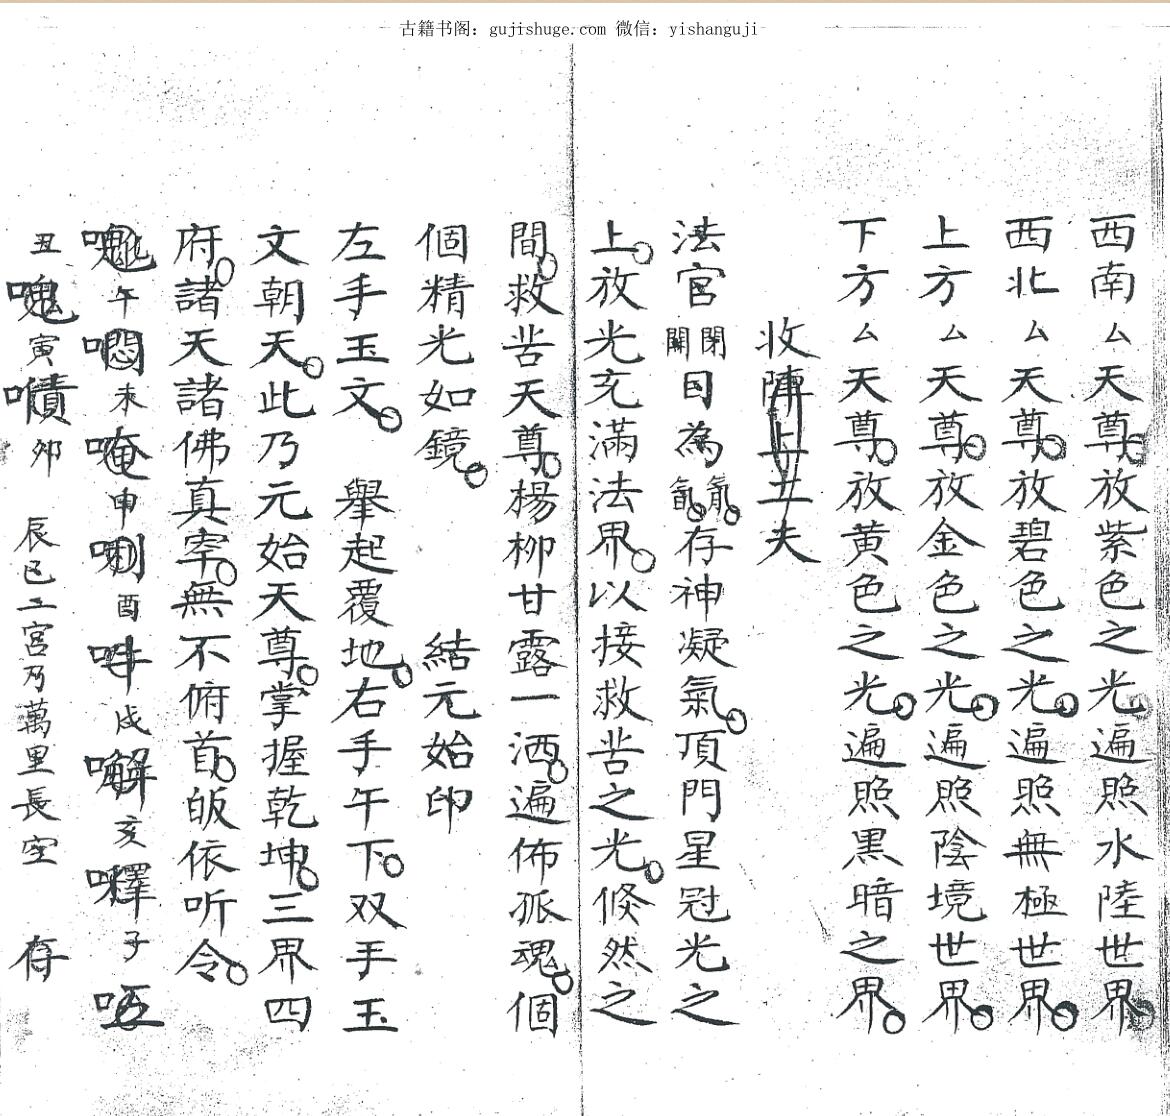 古籍书阁：gujishuge.com 微信：yishanguji
西南ム天尊。放紫色之光。遍照水陸世界。
西北ム天尊。放碧色之光。遍照無極世界。
上方ム天尊。放金色之光。遍照陰境世界。
下方ム天尊。放黄色之光。遍照黒暗之界。
收陣上工夫
法官開閉目為。存神凝氣。頂門星冠光之
上。放光充滿法界。以接救苦之光。倏然之
間。救苦天尊。楊柳甘露一洒。遍佈孤魂。個
個精光如鏡。 結元始印
左手玉文。 舉起覆地。右手午下。双手玉
文朝天。此乃元始天尊。掌握乾坤。三界四
府。諸天諸佛真宰。無不俯首。皈依听令。
午 未 唵 申 唎 酉 吽 戌 嘝 亥 嘚 子
丑 寅 嘳 卯 辰巳二宮乃萬里長空 存